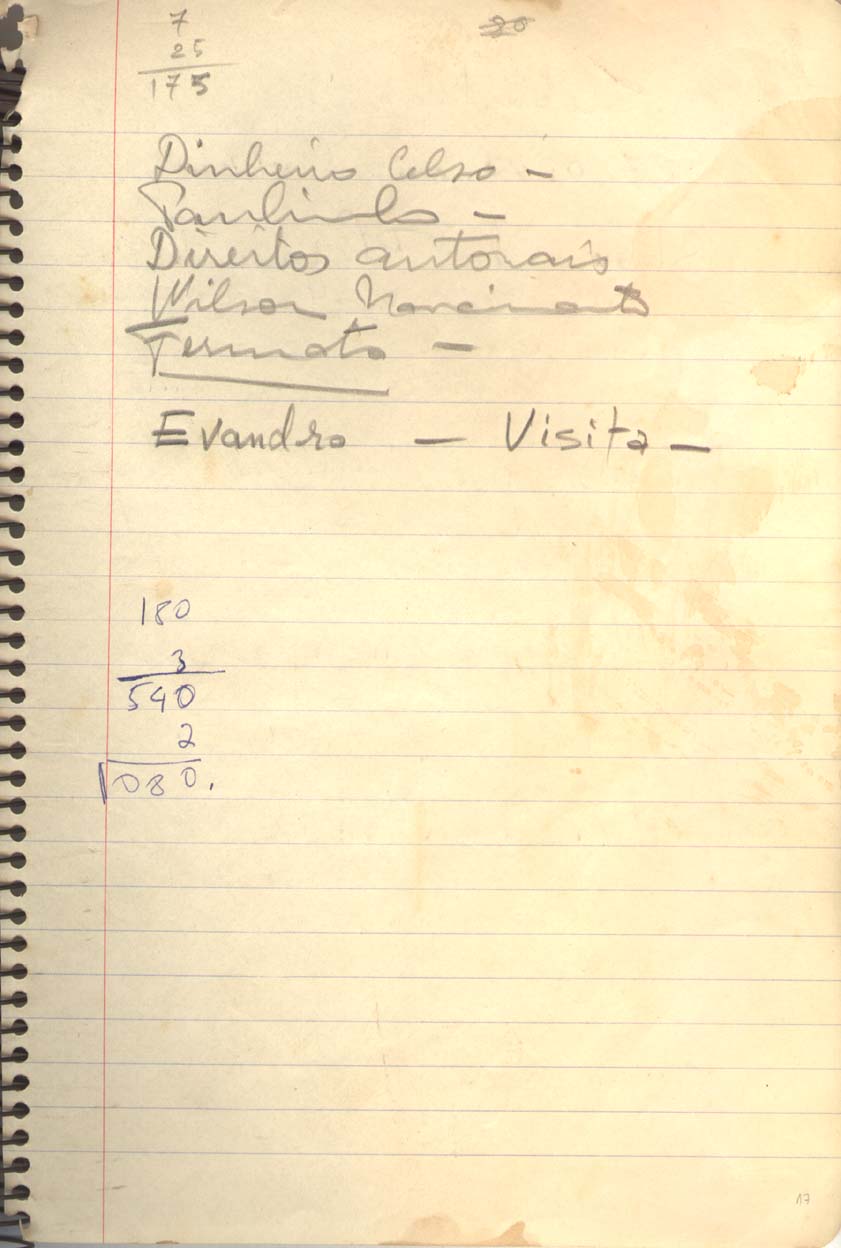 7
20
25
175
Dinheiro Celso -
Paulinho -
Direitos autorais
Wilson Nascimento
Evandro - Visita -
180
3
540
2
1080.
17